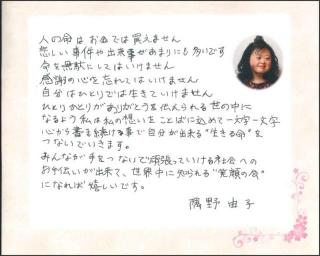 人の命はお金では買えません
悲しい事件や出来事があまりにも多いです
命を無駄にしてはいけません
感謝の心を忘れてはいけません
自分はひとりでは生きていけません
ひとりひとりがありがとうを伝えられる世の中に
なるよう私は私の想いをことばに込めて一文字一文字
心から書き続ける事で自分が出来る"生きる命"を
つないでいきます。
みんなが手をつないで頑張っていける社会への
お手伝いが出来て、世界中に知られる"笑顔の命"
になれば嬉しいです。
隅野 由子